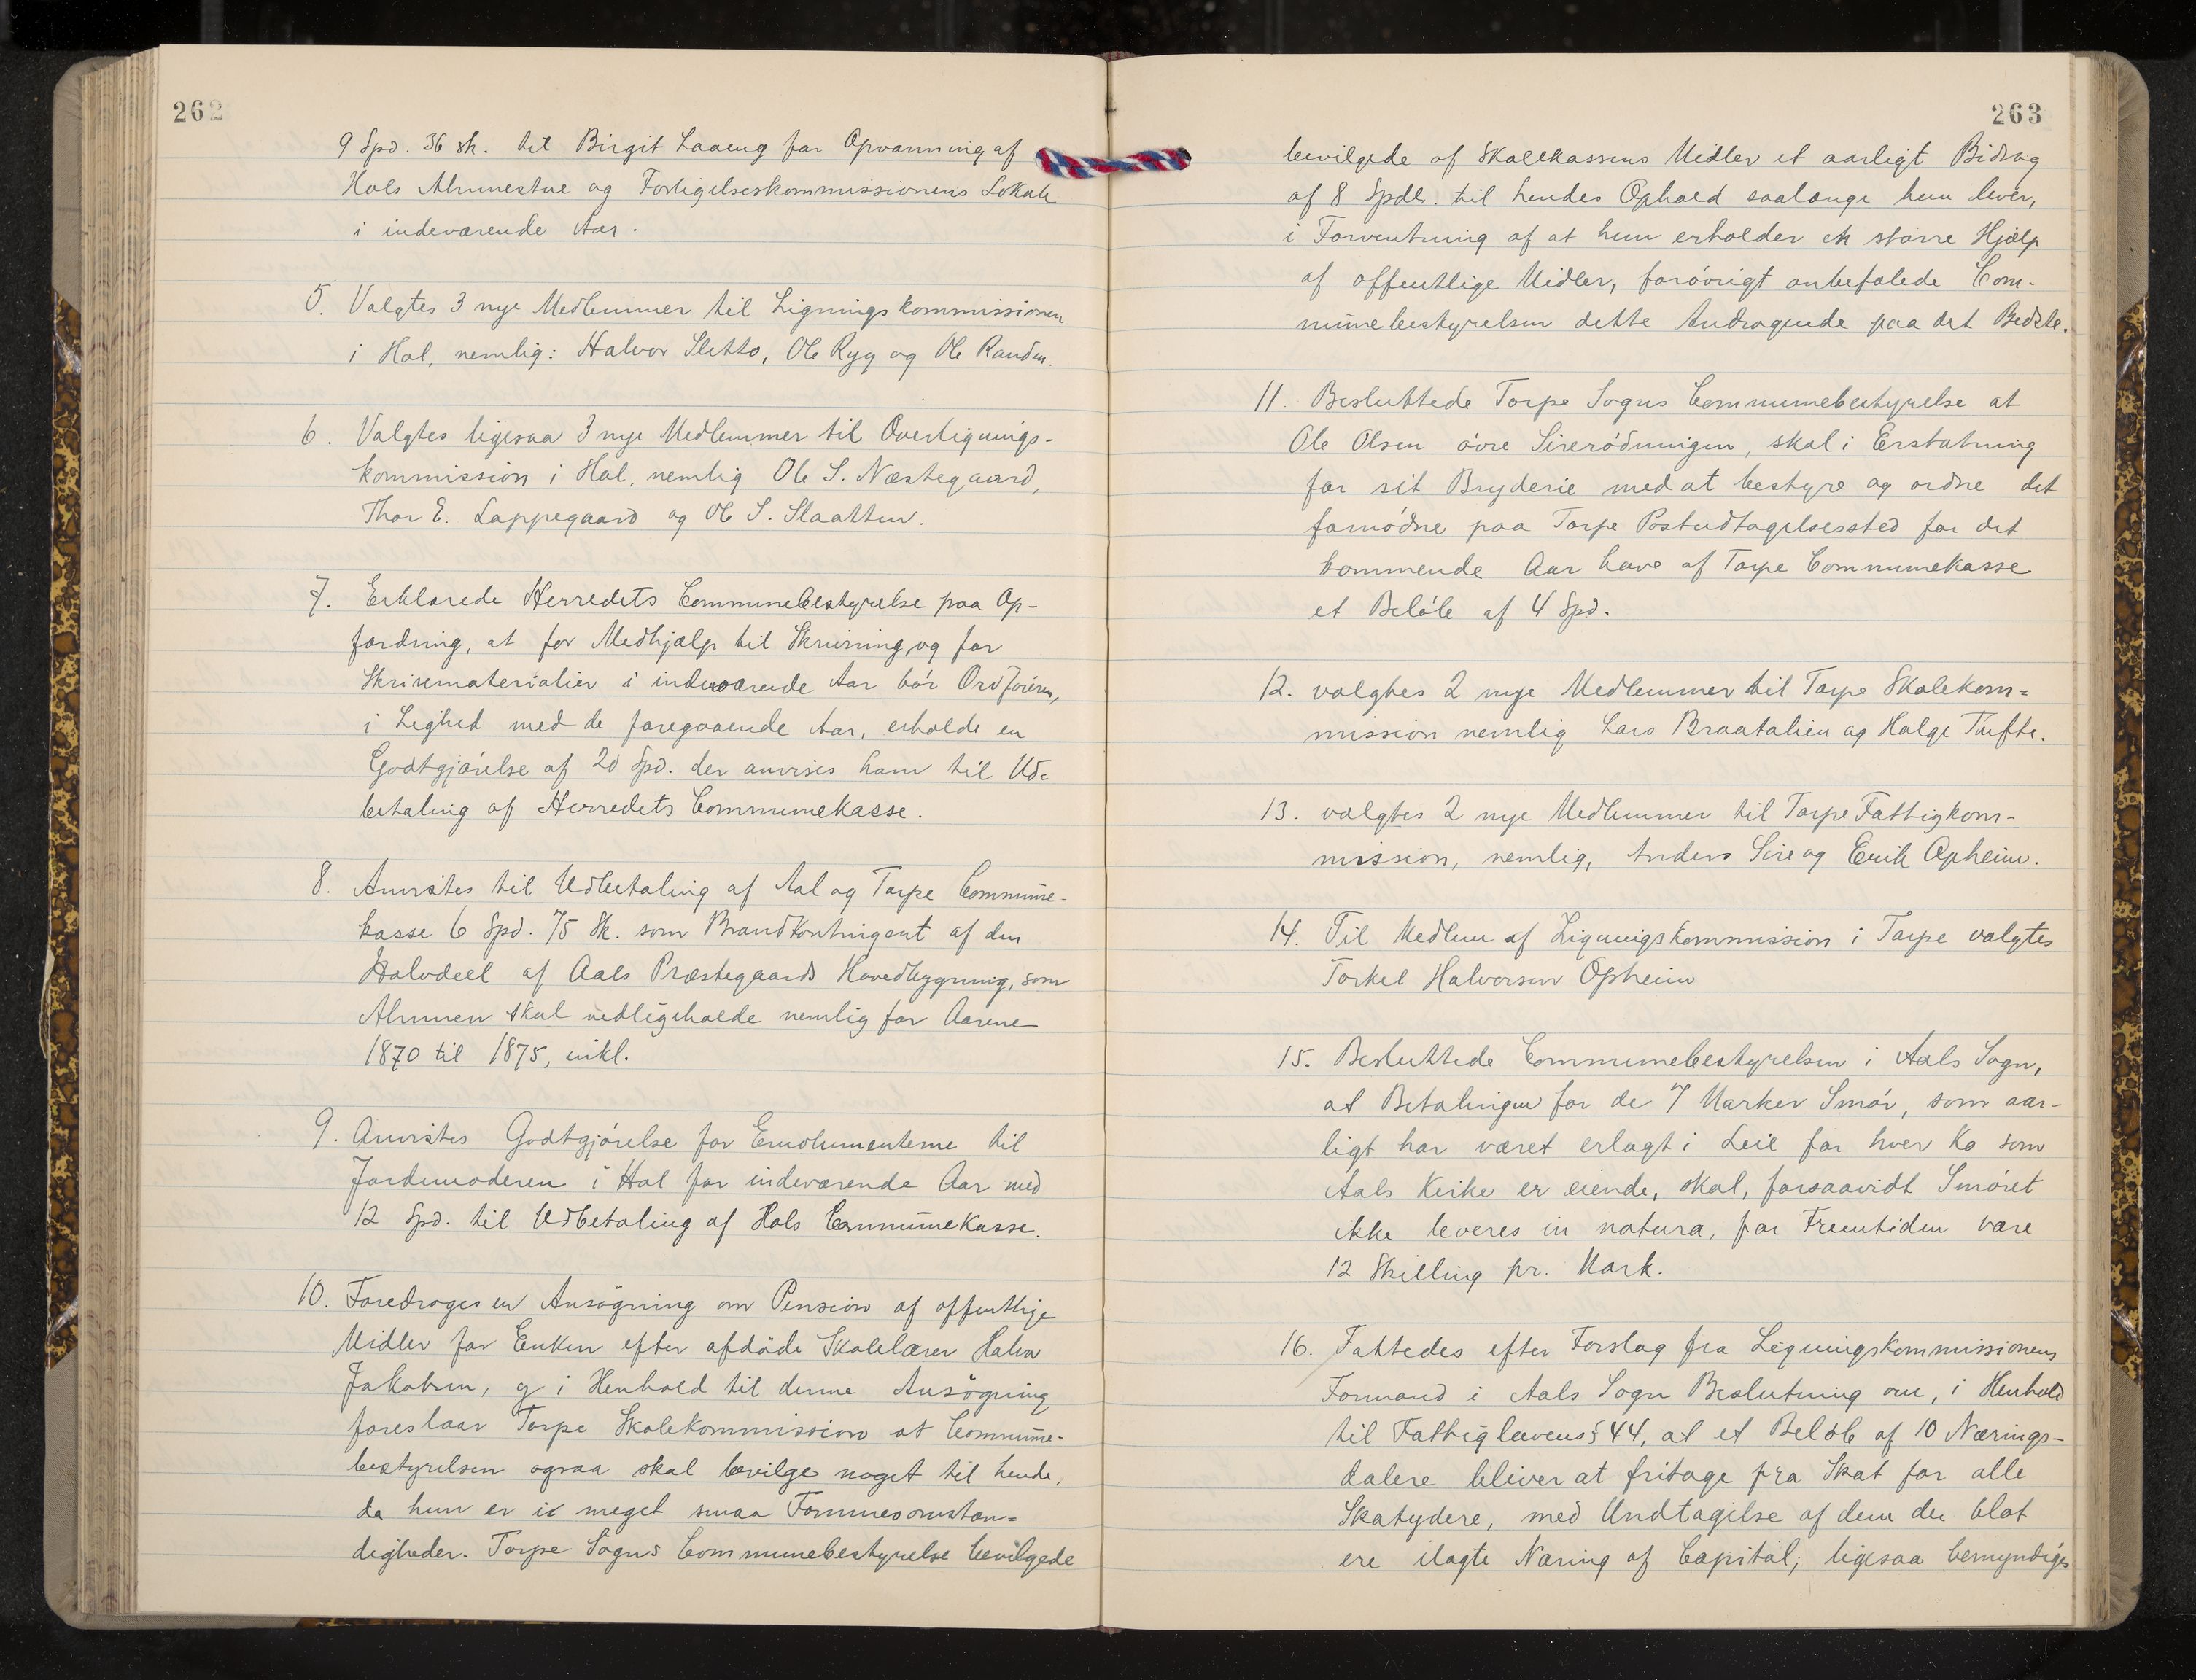 262
9 Spd. 36 sk. til Birgit Laaeng for Opvarmning af
Hols Almuestue og Forligelseskommissionens Lokale
i indeværende Aar.
5. Valgtes 3 nye Medlemmer til Lignings kommissionen
i Hol, nemlig: Halvor Sletto, Ole Ryg og Ole Randen.
6. Valgtes ligesaa 3 nye Medlemmer til Overlignings-
kommission i Hol, nemlig Ole S. Næstegaard,
Thor E. Lappegaard og Ole S. Slaatten.
7. Erklærede Herredets Communebestyrelse paa Op-
fordring, at for Medhjælp til Skrivning og for
Skrivematerialier i indeværende Aar bör Ordföreren,
i Lighed med de foregaaende Aar, erholde en
Godtgjörelse af 20 Spd. der anvises ham til Ud=
betaling af Herredets Communekasse.
8. Anvistes til Udbetaling af Aal og Torpe Commune-
kasse 6 Spd. 75 Sk. som Brandkontingent af den
Halvdeel af Aals Præstegaards Hovedbygning, som
Almuen skal vedligeholde nemlig for Aarene
1870 til 1875, inkl.
9. Anvistes Godtgjörelse for Emolumenterne til
Jordemoderen i Hol for indeværende Aar med
12 Spd. til Udbetaling af Hols Communekasse.
10. Foredroges en Ansögning om Pension af offentlige
Midler for Enken efter afdöde Skolelærer Halvor
Jakobsen, og i Henhold til denne Ansögning
foreslaar Torpe Skolekommission at Commune-
bestyrelsen ogsaa skal bevilge noget til hende,
da hun er i meget smaa Formuesomstæn=
digheder. Torpe Sogns Communebestyrelse bevilgede
263
bevilgede af Skolekassens Midler et aarligt Bidrag
af 8 Spdlr. til hendes Ophold saalænge hun lever,
i Forventning af at hun erholder en större Hjælp
af offentlige Midler, forövrigt anbefalede Com-
munebestyrelsen dette Andragende paa det Bedste.
11. Besluttede Torpe Sogns Communebestyrelse at
Ole Olsen övre Sirerödningen, skal i Erstatning
for sit Bryderie med at bestyre og ordne det
fornödne paa Torpe Postudtagelsessted for det
kommende Aar have af Torpe Communekasse
et Belöb af 4 Spd.
12. valgtes 2 nye Medlemmer til Torpe Skolekom=
mission nemlig Lars Braatalien og Halge Tufte.
13. valgtes 2 nye Medlemmer til Torpe Fattigkom-
mission, nemlig, Anders Sire og Erik Opheim.
14. Til Medlem af Ligningskommission i Torpe valgtes
Torkel Halvorsen Opheim
15. Besluttede Communebestyrelsen i Aals Sogn,
at Betalingen for de 7 Marker Smör, som aar-
ligt har været erlagt i Leie for hver Ko som
Aals Kirke er eiende, skal, forsaavidt Smöret
ikke leveres in natura, for Fremtiden være
12 Skilling pr. Mark.
16. Fattedes efter Forslag fra Ligningskommissionens
Formand i Aals Sogn Beslutning om, i Henhold
til Fattiglovens § 44, at et Belöb af 10 Nærings-
dalere bliver at fritage fra Skat for alle
Skatydere, med Undtagelse af dem der blot
ere ilagte Næring af Capital; ligesaa bemyndiges